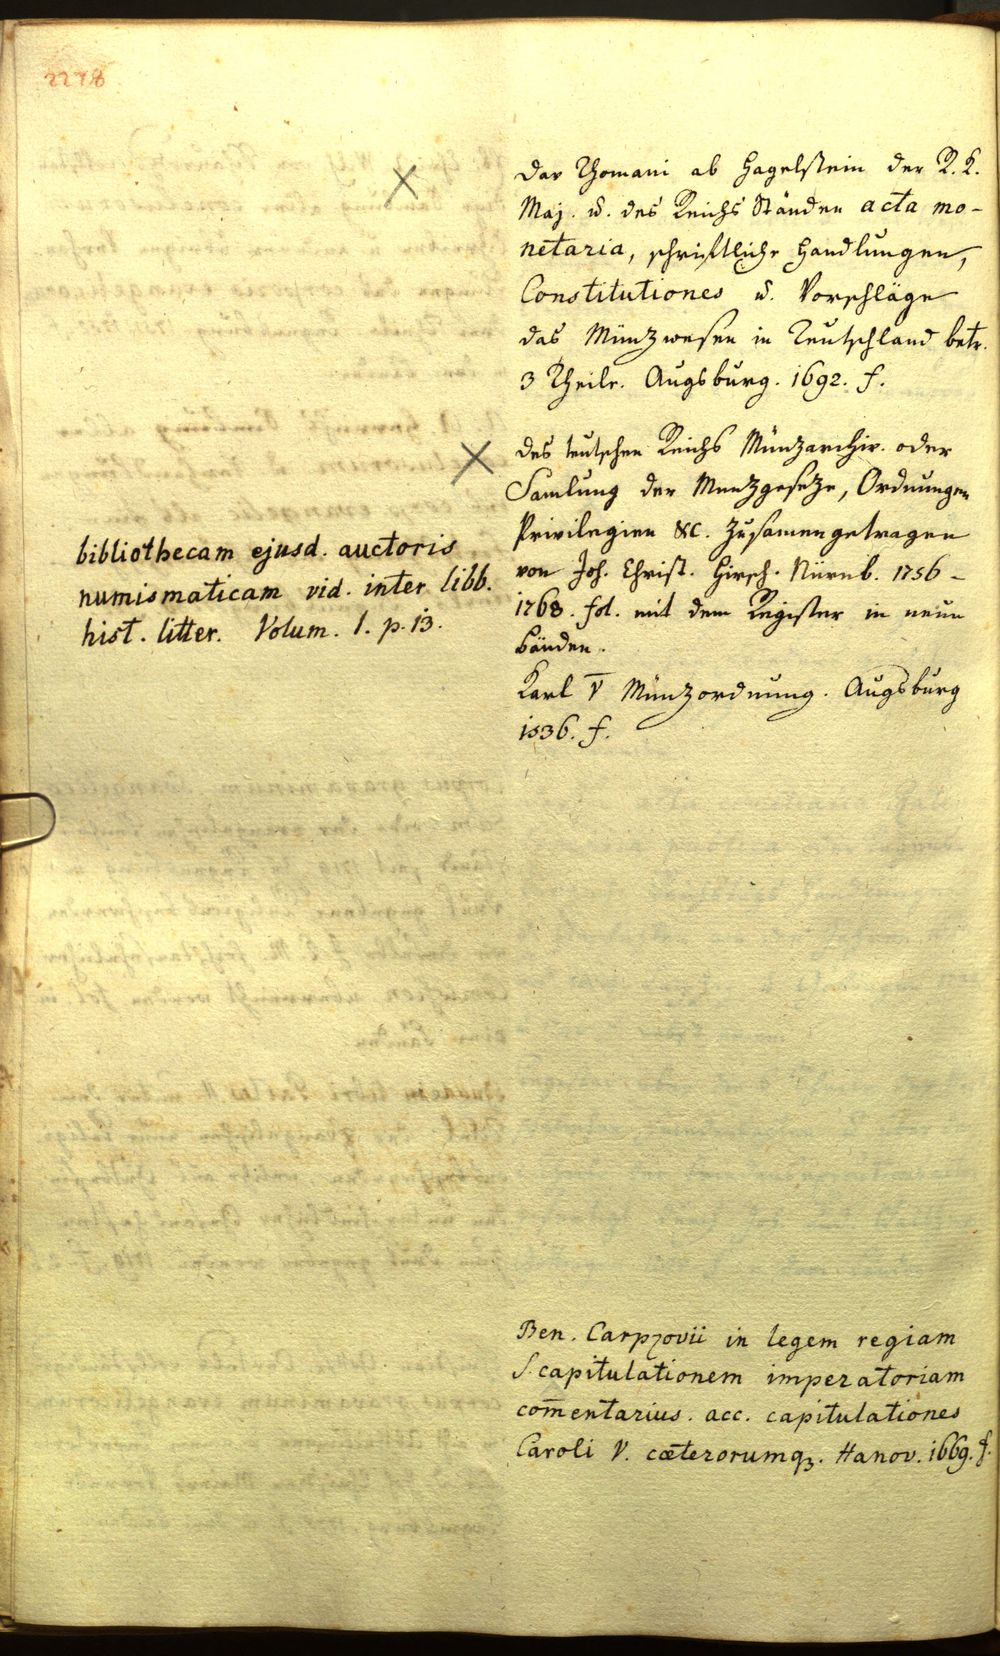 2278
Dav Thomani ab Hagelstein der R. K.
Maj. u. des Reichs Ständen acta mo-
netaria, schriftliche Handlungen,
Constitutiones u. Vorschläge
das Münzwesen in Teutschland betr.
3 Theile. Augsburg. 1692. f.
des teutschen Reichs Münzarchiv. oder
Samlung der Munzgeseze, Ordnungen
Privilegien &c. zusamengetragen
von Joh. Christ. Hirsch. Nürnb. 1756-
1768. fol. mit dem Register in neun
bänden.
bibliothecam ejusd. auctoris
numismaticam vid. inter libb.
hist. litter. Volum. 1. p. 13.
Karl V Münzordnung. Augsburg
1536. f.
Ben. Carpzovii in legem regiam
S. capitulationem imperatoriam
com̄entarius. acc. capitulationes
Caroli V. cæterorumqꝫ. Hanov. 1669. f.